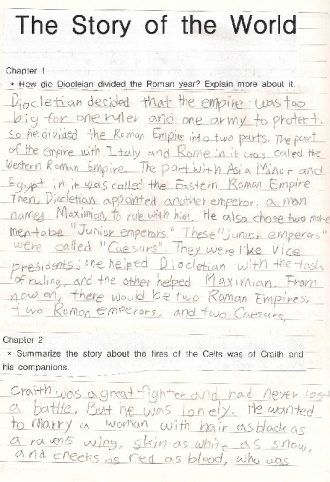 The Story of the World
Chapter 1
• How did Diocleian divided the Roman year? Explain more about it.
Diocletian decided that the empire was too
big for one ruler and one army to protect.
so he divided the Roman Empire into two parts. The part
of the empire with Italy and Rome in it was called the
Western Roman Empire. The part with Asia Minor and
Egypt in it was called the Eastern Roman Empire
Then, Diocletian appointed another emperor. a man
named Maximian to rule with him. He also chose two more
men to be "Junior emperors" These "junior emperors"
were called "Caesars". They were like vice
presidents: one helped Diocletian with the task
of ruling, and the other helped Maximian. From
now on, there would be two Roman Empires,
two Roman Emperors, and two Caesars
Chapter 2
* Summarize the story about the fires of the Celts was of Craith and
his companions.
Craith was a great fighter and had never lost
a battle. But he was lonely. He wanted
to marry a woman with hair as black as
a ravens wing, skin as white as snow,
and cheeks as red as blood, who was